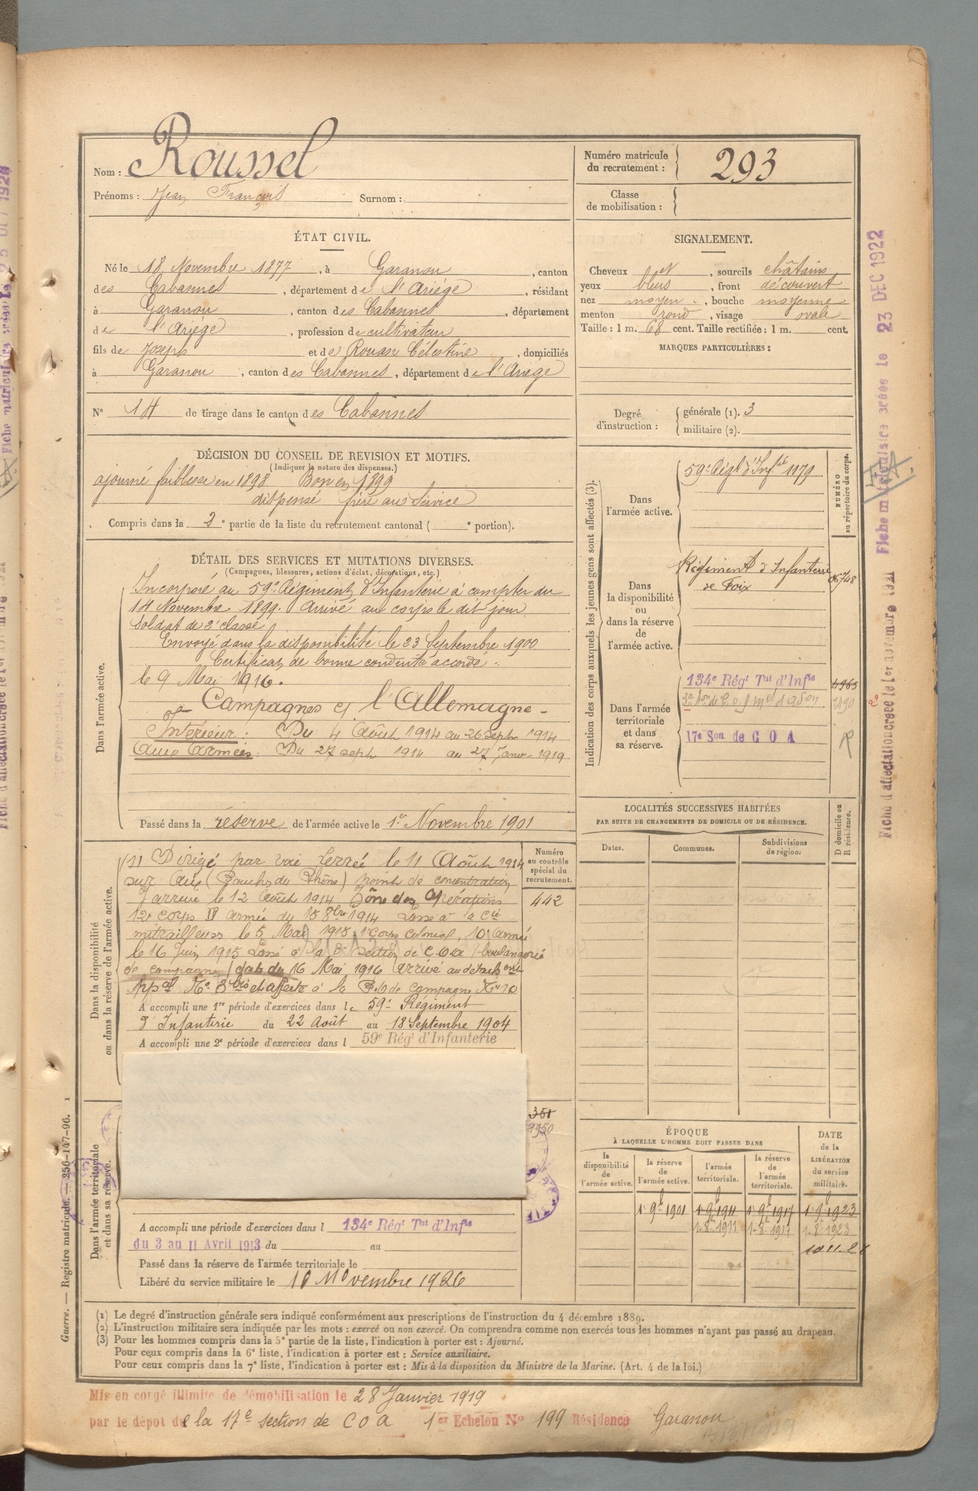 Nom : Roussel
Prénoms : Jean François Surnom :
Numéro matricule du recrutement : 293
Classe de mobilisation :
ÉTAT CIVIL.
Né le 18 Novembre 1877, à Garanou, canton
des Cabannes, département de l'Ariège, résidant
à Garanou, canton des Cabannes, département
de l'Ariège, profession de cultivateur
fils de Joseph et de Rouan Célestine, domiciliés
à Garanou, canton des Cabannes, département de l'Ariège
N° 14 de tirage dans le canton des Cabannes
SIGNALEMENT.
Cheveux et, sourcils châtains
yeux bleus, front découvert
nez moyen, bouche moyenne
menton rond, visage ovale
Taille : 1 m. 68 cent. Taille rectifiée : 1 m. cent.
MARQUES PARTICULIÈRES :
Degré d'instruction : générale (1). 3
militaire (2).
DÉCISION DU CONSEIL DE REVISION ET MOTIFS.
(Indiquer la nature des dispenses.)
ajourné faiblesse en 1898 Bon en 1899
dispensé frère au service
Compris dans la 2e partie de la liste du recrutement cantonal ( e portion).
DÉTAIL DES SERVICES ET MUTATIONS DIVERSES.
(Campagnes, blessures, actions d'éclat, décorations, etc.)
Dans l'armée active.
Incorporé au 59e Régiment d'Infanterie à compter du
14 Novembre 1899. Arrivé au corps le dit jour
Soldat de 2e classe.
Envoyé dans la disponibilité le 23 Septembre 1900
Certificat de bonne conduite accordé.
le 9 Mai 1916.
Campagnes c/ l'Allemagne -
Intérieur : Du 4 Août 1914 au 26 Septe 1914
Aux Armées : Du 27 septe 1914 au 27 Janv. 1919
Passé dans la réserve de l'armée active le 1er Novembre 1901
Indication des corps auxquels les jeunes gens sont affectés (3).
NUMÉRO au répertoire du corps.
Dans l'armée active.
59e Régt d'Infie
Dans la disponibilité ou dans la réserve de l'armée active.
Régiment d'Infanterie
de Foix
Dans l'armée territoriale et dans sa réserve.
134e Régt Tal d'Infie
17e Son de C O A
LOCALITÉS SUCCESSIVES HABITÉES
PAR SUITE DE CHANGEMENTS DE DOMICILE OU DE RÉSIDENCE.
Dates. Communes. Subdivisions de région. D domicile ou R résidence.
Dans la disponibilité ou dans la réserve de l'armée active.
Numéro au contrôle spécial du recrutement.
442
Dirigé par voie ferrée le 11 Août 1914
sur Aix (Bouches du Rhône) point de concentration
Y arrive le 12 Août 1914 Zône des Opérations
12e corps IV armée du 18 8bre 1914 Passé à la Cie
mitrailleuses le 5 Mai 1915 1er Corps colonial, 10e armée
le 16 Juin 1915 Passé à la Section de C O A (boulangerie
de campagne) 16 Mai 1916 arrivé au
A accompli une 1re période d'exercices dans le 59e Régiment
d'Infanterie du 22 Août au 18 Septembre 1904
A accompli une 2e période d'exercices dans l 59e Régt d'Infanterie
Dans l'armée territoriale et dans sa réserve.
A accompli une période d'exercices dans l 134e Régt Tal d'Infie
du 3 au 11 Avril 1913 du au
Passé dans la réserve de l'armée territoriale le
Libéré du service militaire le 10 Novembre 1926
ÉPOQUE
À LAQUELLE L'HOMME DOIT PASSER DANS
DATE de la LIBÉRATION du service militaire.
la disponibilité de l'armée active. la réserve de l'armée active. l'armée territoriale. la réserve de l'armée territoriale.
1 9e 1901 1 9e 1911 1 9e 1917 1 9e 1923
1. 8. 1911 1. 8. 1917 1. 8. 1923
(1) Le degré d'instruction générale sera indiqué conformément aux prescriptions de l'instruction du 4 décembre 1889.
(2) L'instruction militaire sera indiquée par les mots : exercé ou non exercé. On comprendra comme non exercés tous les hommes n'ayant pas passé au drapeau.
(3) Pour les hommes compris dans la 5e partie de la liste, l'indication à porter est : Ajourné.
Pour ceux compris dans la 6e liste, l'indication à porter est : Service auxiliaire.
Pour ceux compris dans la 7e liste, l'indication à porter est : Mis à la disposition du Ministre de la Marine. (Art. 4 de la loi.)
Mis en congé illimité de démobilisation le 28 Janvier 1919
par le dépôt de la 17e section de C O A 1er Echelon N° 199 Résidence Garanou
Guerre. — Registre matricule. — 256-147-96. 1
Fiche matriculaire créée le 23 DEC 1922
Fiche d'affectation créée le 1er novembre 1921